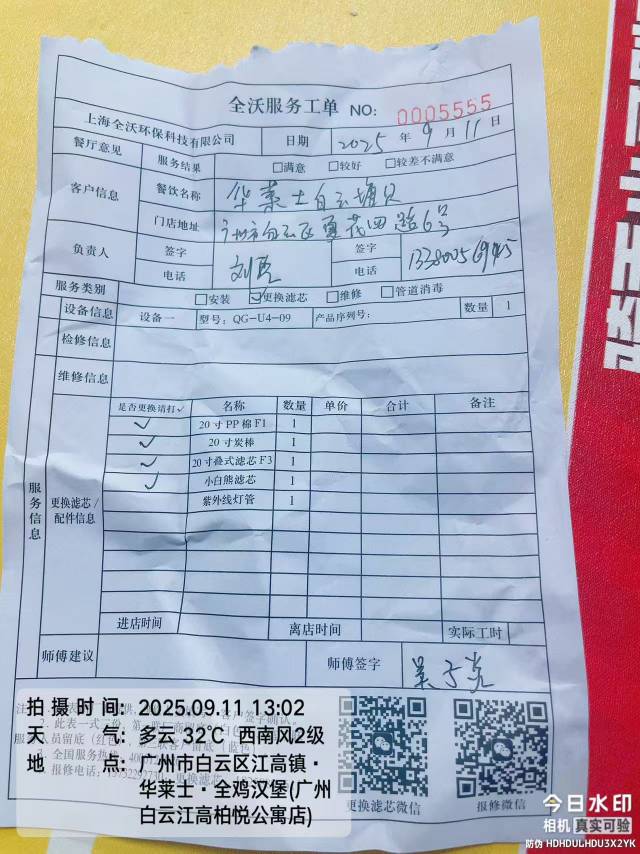 全沃服务工单 NO: 0005555
上海全沃环保科技有限公司 日期 2025 年 9 月 11 日
餐厅意见 服务结果 □满意 □较好 □较差不满意
客户信息 餐饮名称 华莱士白云
门店地址 广州市白云区 花四路6号
负责人 签字 刘 签字
电话 电话
服务类别 □安装 ☑更换滤芯 □维修 □管道消毒
设备信息 设备一 型号: QG-U4-09 产品序列号: 数量 1
检修信息
维修信息
服务信息
更换滤芯/配件信息
是否更换请打✓ 名称 数量 单价 合计 备注
✓ 20寸PP棉F1 1
✓ 20寸炭棒 1
✓ 20寸叠式滤芯F3 1
✓ 小白熊滤芯 1
紫外线灯管 1
进店时间 离店时间 实际工时
师傅建议 师傅签字
拍摄时间: 2025.09.11 13:02
天气: 多云 32℃ 西南风2级
地点: 广州市白云区江高镇·
华莱士·全鸡汉堡(广州
白云江高柏悦公寓店)
更换滤芯微信 报修微信
今日水印
相机 真实可验
防伪 HDHDULHDU3X2YK